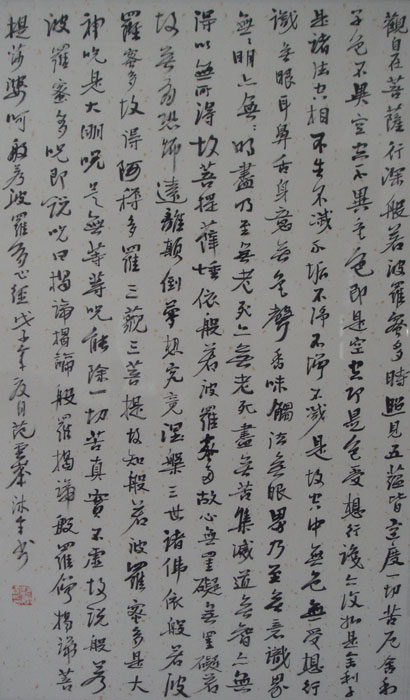 觀自在菩薩行深般若波羅蜜多時照見五蘊皆空度一切苦厄舍利
子色不異空空不異色色即是空空即是色受想行識亦復如是舍利子
是諸法空相不生不滅不垢不淨不增不減是故空中無色無受想行
識無眼耳鼻舌身意無色聲香味觸法無眼界乃至無意識界
無無明亦無無明盡乃至無老死亦無老死盡無苦集滅道無智亦無
得以無所得故菩提薩埵依般若波羅蜜多故心無罣礙無罣礙
故無有恐怖遠離顛倒夢想究竟涅槃三世諸佛依般若波
羅蜜多故得阿耨多羅三藐三菩提故知般若波羅蜜多是大
神咒是大明咒是無等等咒能除一切苦真實不虛故說般若
波羅蜜多咒即說咒曰揭諦揭諦般羅揭諦般羅僧揭諦菩
提莎婆呵般若波羅多心經戊子年夏日范沐手书